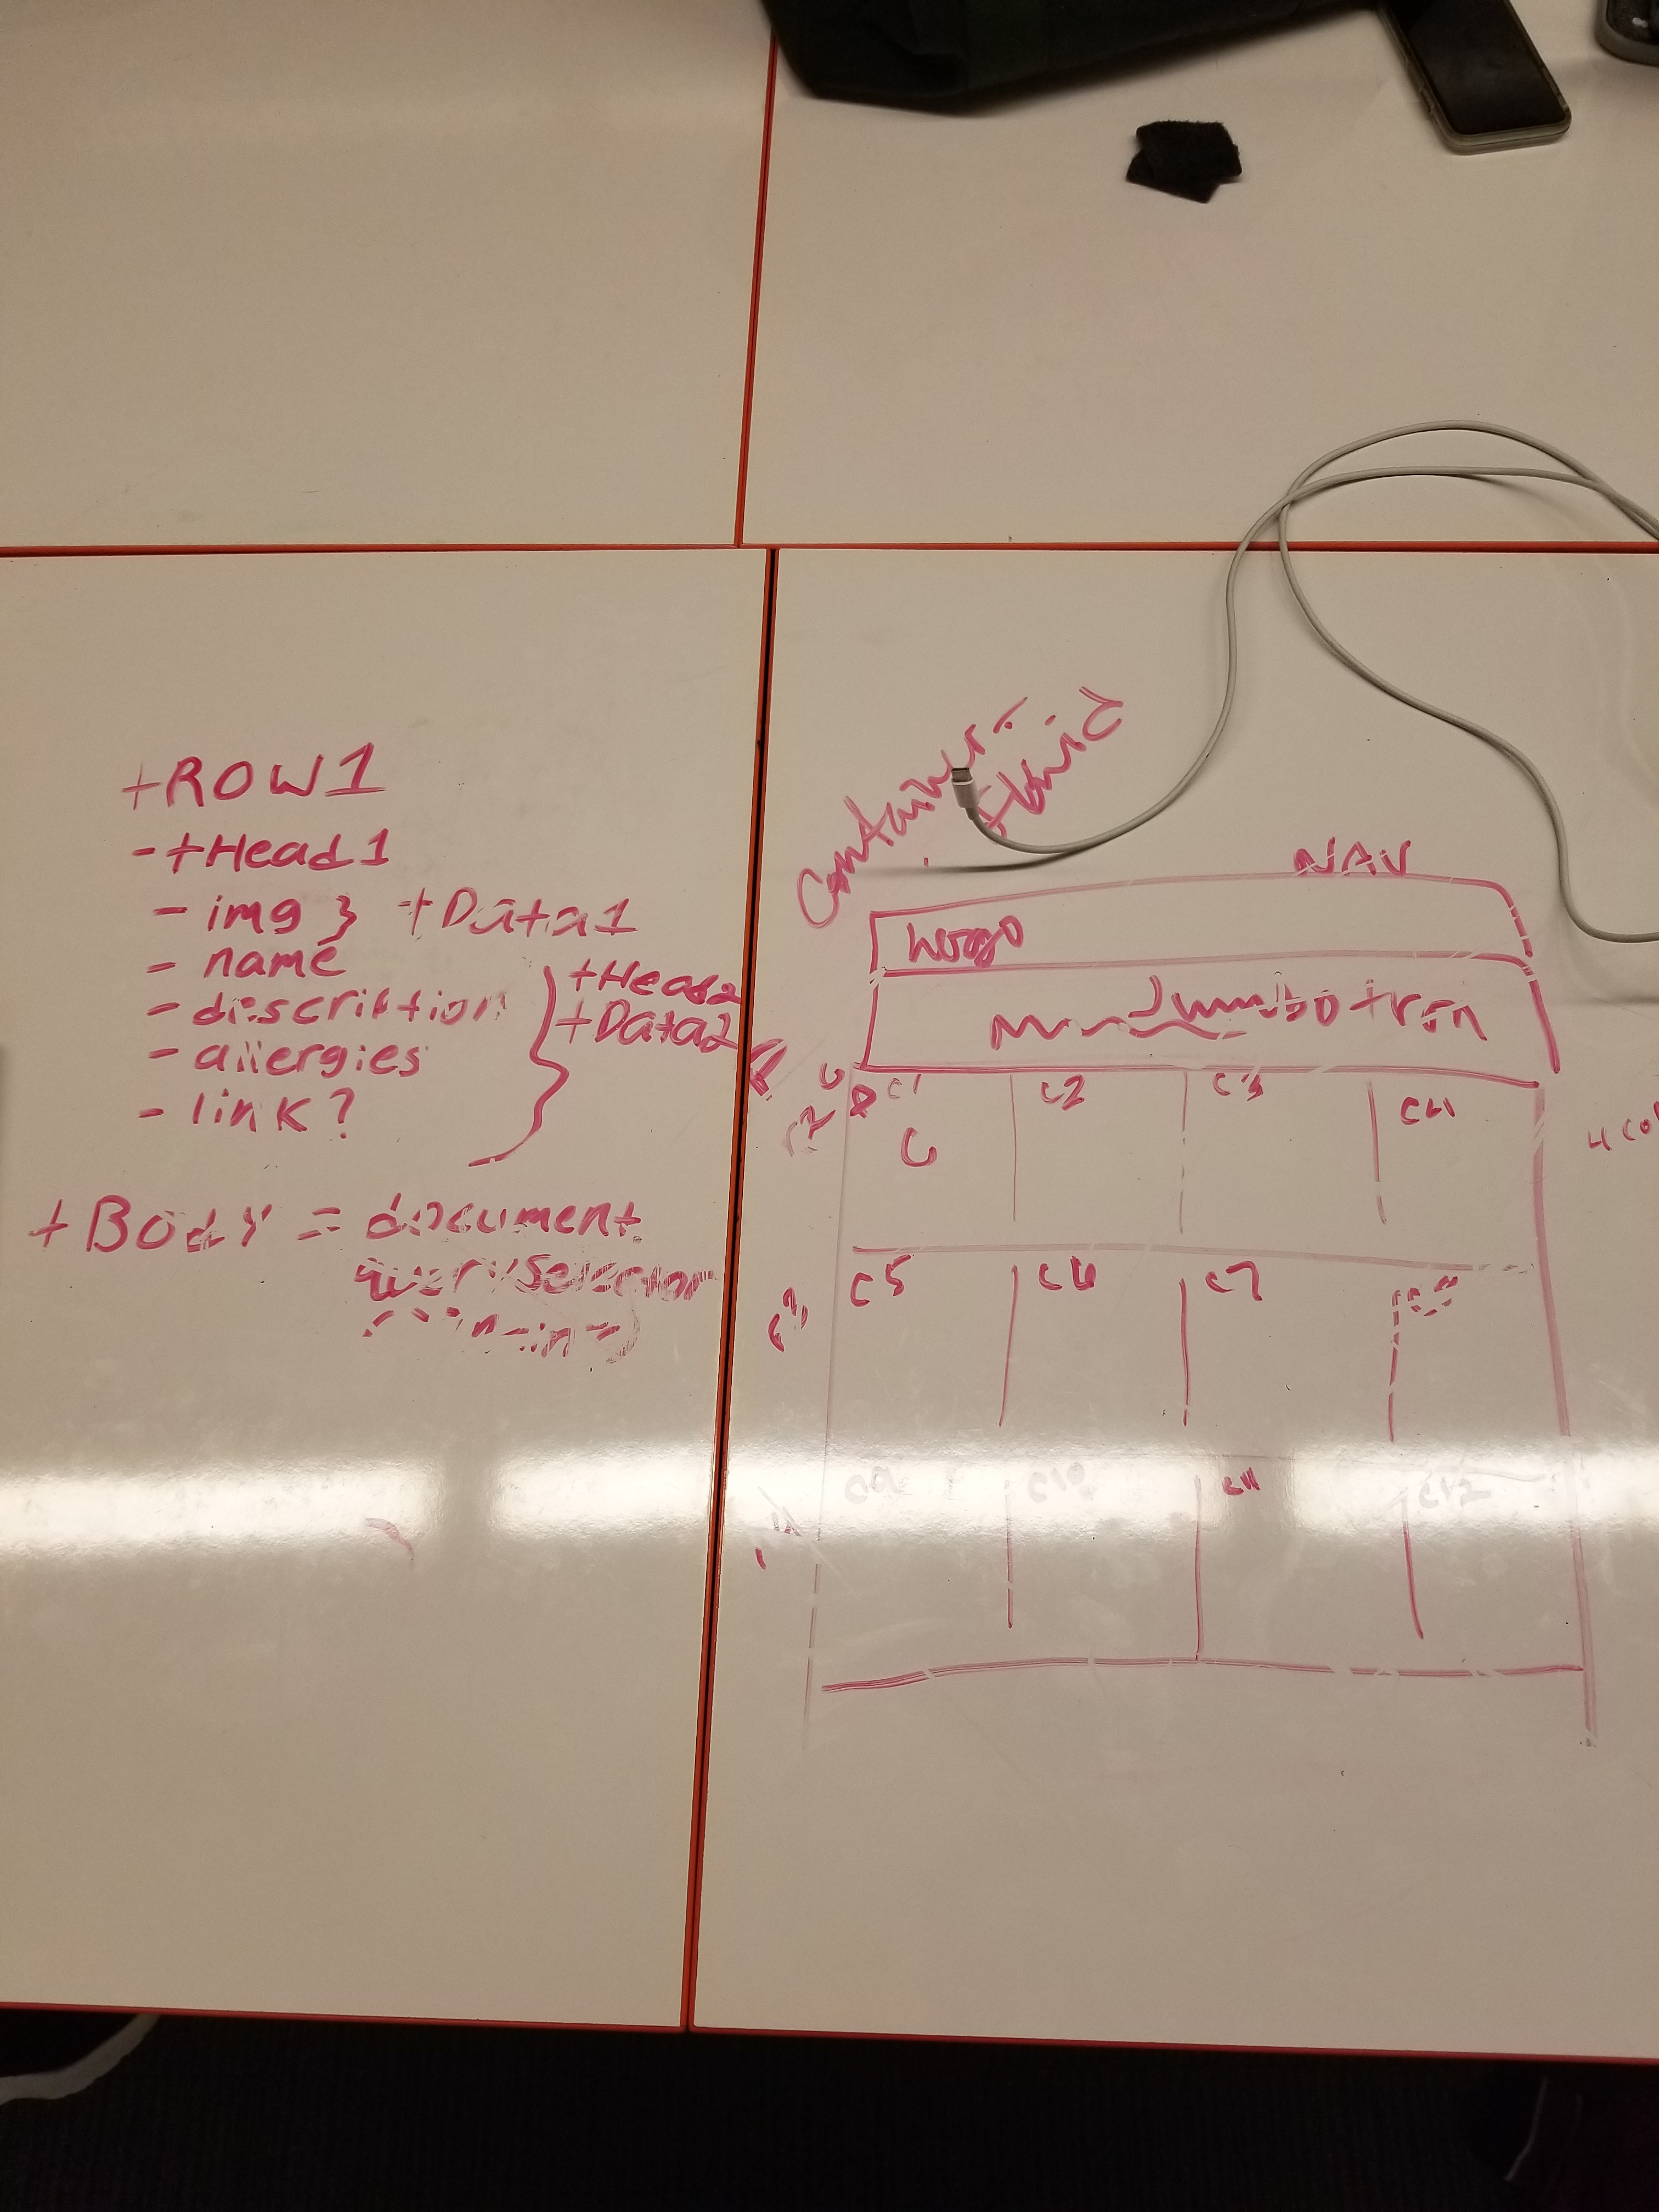 +ROW1
-+Head1
- img } +Data1
- name
- description
- allergies
- link?
+Head2
+Data2
+Body = document.
querySelector
Container-
fluid
NAV
Logo
Jumbotron
C1 C2 C3 C4
C
r2
C5 C6 C7
r3
C9 C10 C11 C12
4 col